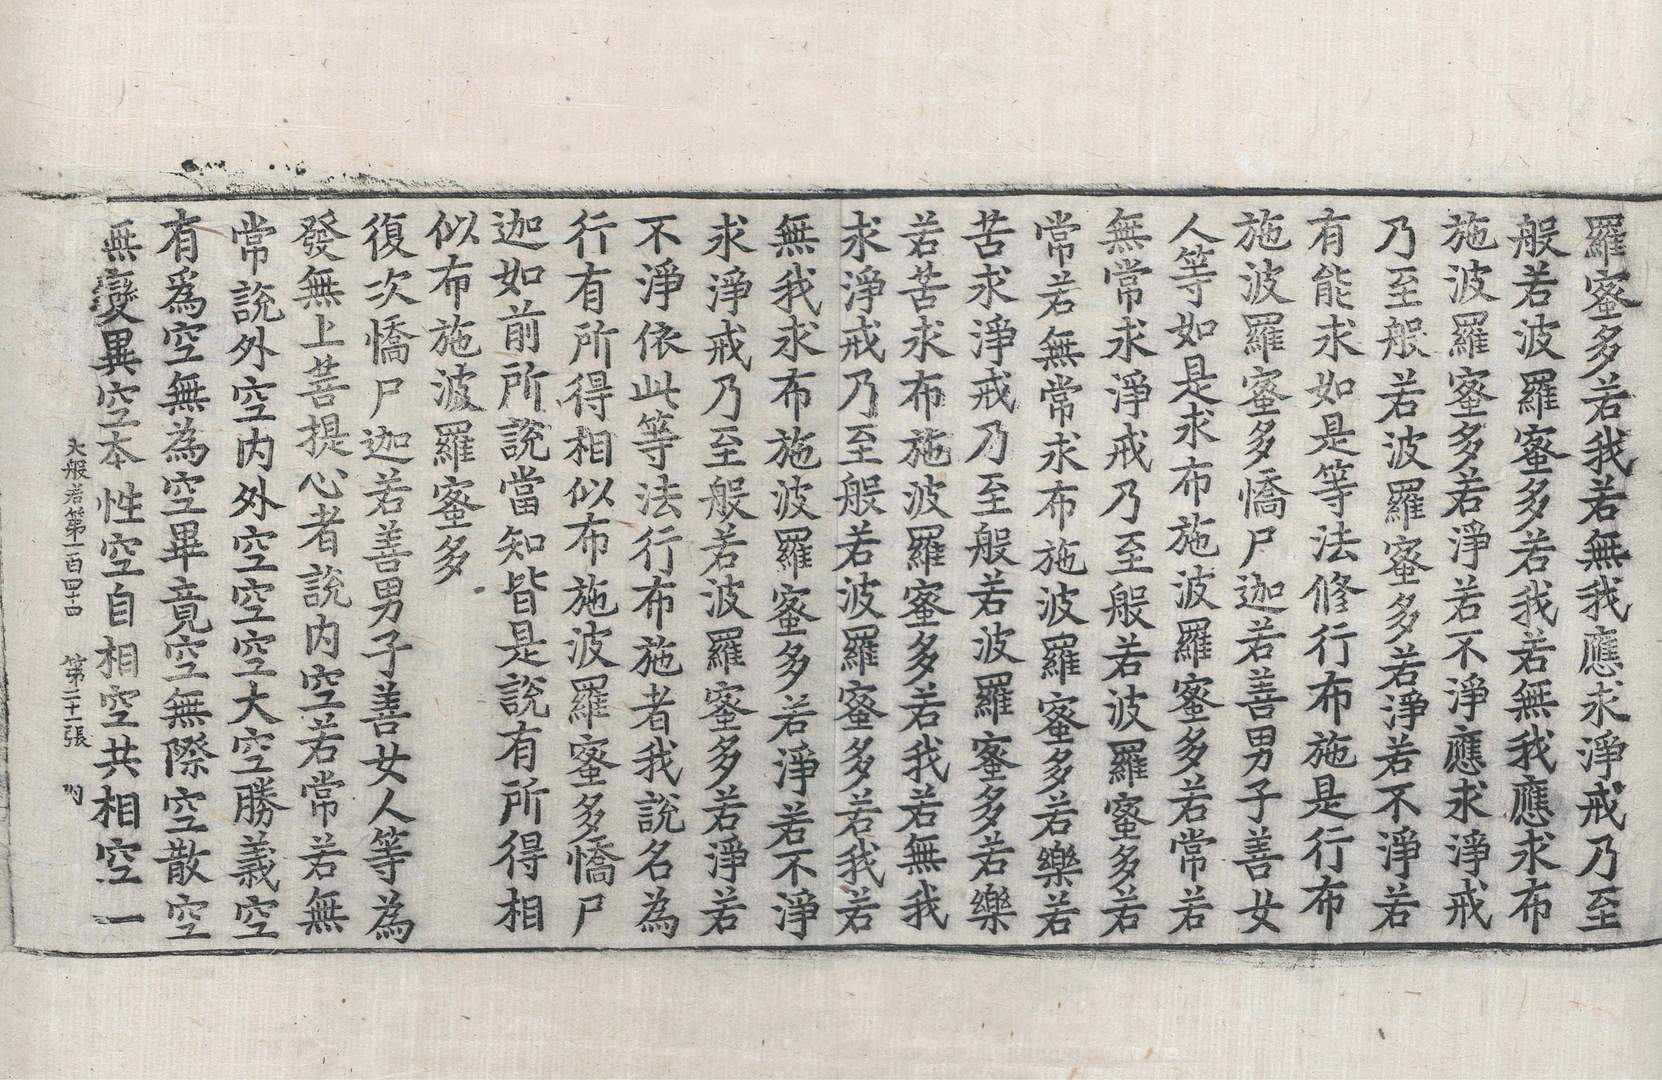 羅蜜多若我若無我應求淨戒乃至
般若波羅蜜多若我若無我應求布
施波羅蜜多若淨若不淨應求淨戒
乃至般若波羅蜜多若淨若不淨若
有能求如是等法修行布施是行布
施波羅蜜多憍尸迦若善男子善女
人等如是求布施波羅蜜多若常若
無常求淨戒乃至般若波羅蜜多若
常若無常求布施波羅蜜多若樂若
苦求淨戒乃至般若波羅蜜多若樂
若苦求布施波羅蜜多若我若無我
求淨戒乃至般若波羅蜜多若我若
無我求布施波羅蜜多若淨若不淨
求淨戒乃至般若波羅蜜多若淨若
不淨依此等法行布施者我說名為
行有所得相似布施波羅蜜多憍尸
迦如前所說當知皆是說有所得相
似布施波羅蜜多
復次憍尸迦若善男子善女人等為
發無上菩提心者說內空若常若無
常說外空內外空空空大空勝義空
有爲空無為空畢竟空無際空散空
無變異空本性空自相空共相空一
大般若第一百四十四 第二十一張